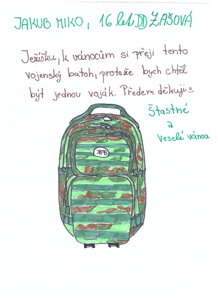 JAKUB MIKO, 16 let DD ZAŠOVÁ
Ježíšku, k vánocům si přeji tento
vojenský batoh, protože bych chtěl
být jednou voják. Předem děkuji
Šťastné
a
veselé vánoce